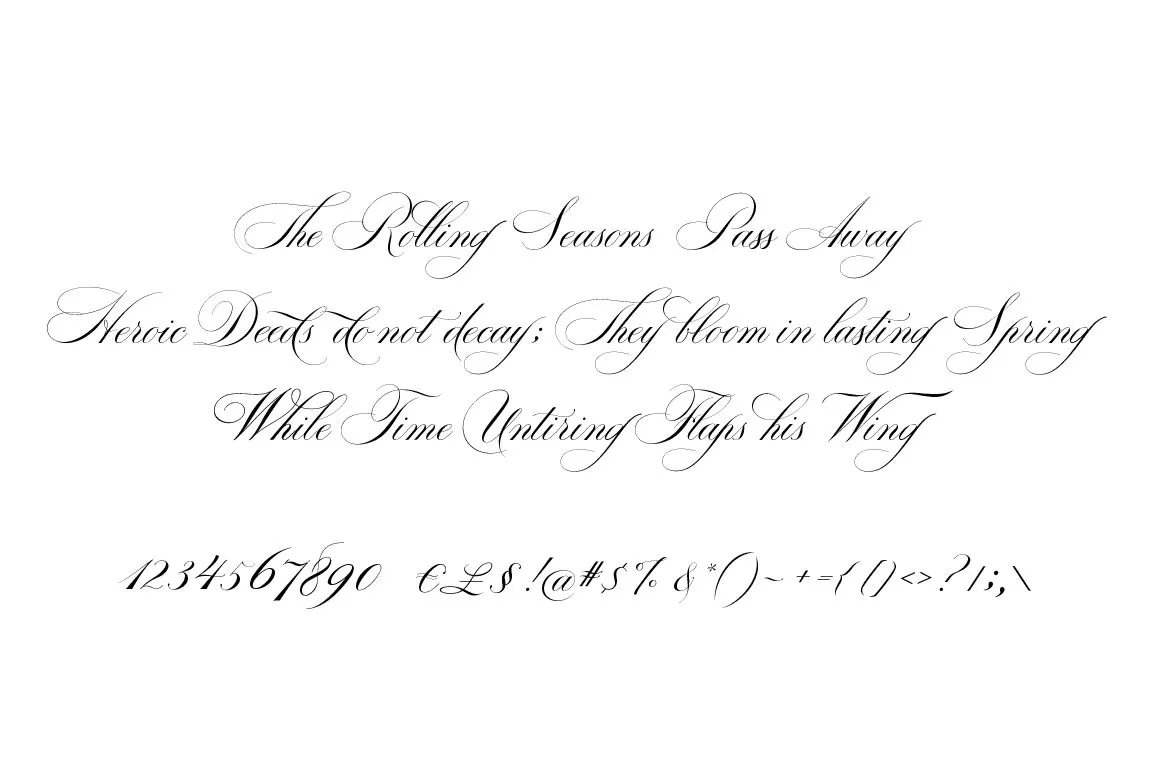 The Rolling Seasons Pass Away
Heroic Deeds do not decay; They bloom in lasting Spring
While Time Untiring Flaps his Wing
1234567890 €£§!@#$%&*()~+={[]<>?/:;,\